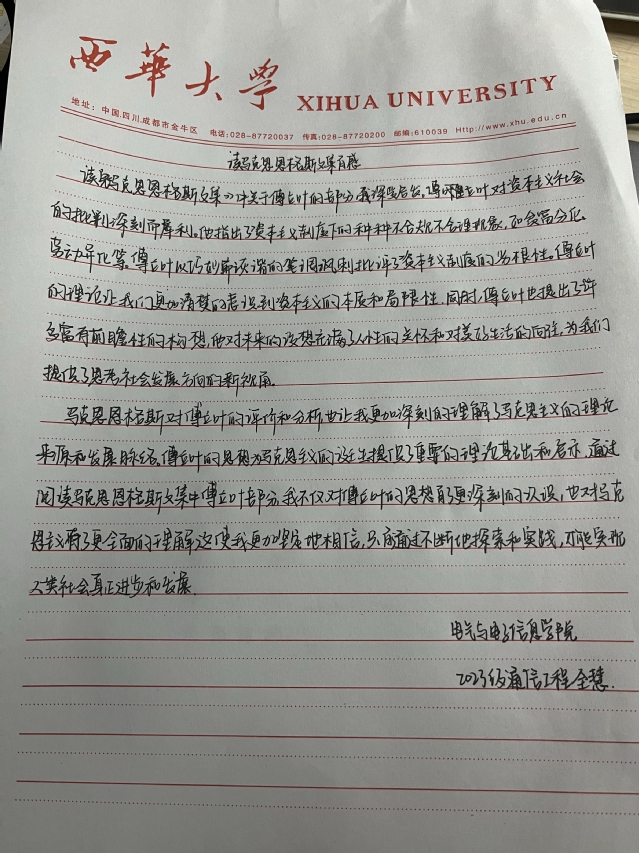 西華大学 XIHUA UNIVERSITY
地址：中国.四川.成都市金牛区 电话:028-87720037 传真:028-87720200 邮编:610039 Http://www.xhu.edu.cn
读马克思恩格斯文集有感
读完马克思恩格斯文集》中关于傅立叶的部分,我深受启发,傅立叶对资本主义社会
的批判深刻而犀利。他指出了资本主义制度下的种种不合理现象,如贫富分化、
劳动异化等。傅立叶以巧妙诙谐的笔调讽刺批评了资本主义制度的劣根性。傅立叶
的理论让我们更加清楚的意识到资本主义的本质和局限性,同时,傅立叶也提出了许
多富有前瞻性的构想,他对未来的设想充满了人性的关怀和对美好生活的向往,为我们
提供了思考社会发展方向的新视角。
马克思恩格斯对傅立叶的评价和分析也让我更加深刻的理解了马克思主义的理论
来源和发展脉络。傅立叶的思想为马克思主义的诞生提供了重要的理论基础和启示,通过
阅读马克思恩格斯文集中傅立叶部分,我不仅对傅立叶的思想有了更深刻的认识,也对马克
思主义有了更全面的理解,这使我更加坚定地相信,只有通过不断地探索和实践,才能实现
人类社会真正进步和发展.
电气与电子信息学院
2023级通信工程全慧.